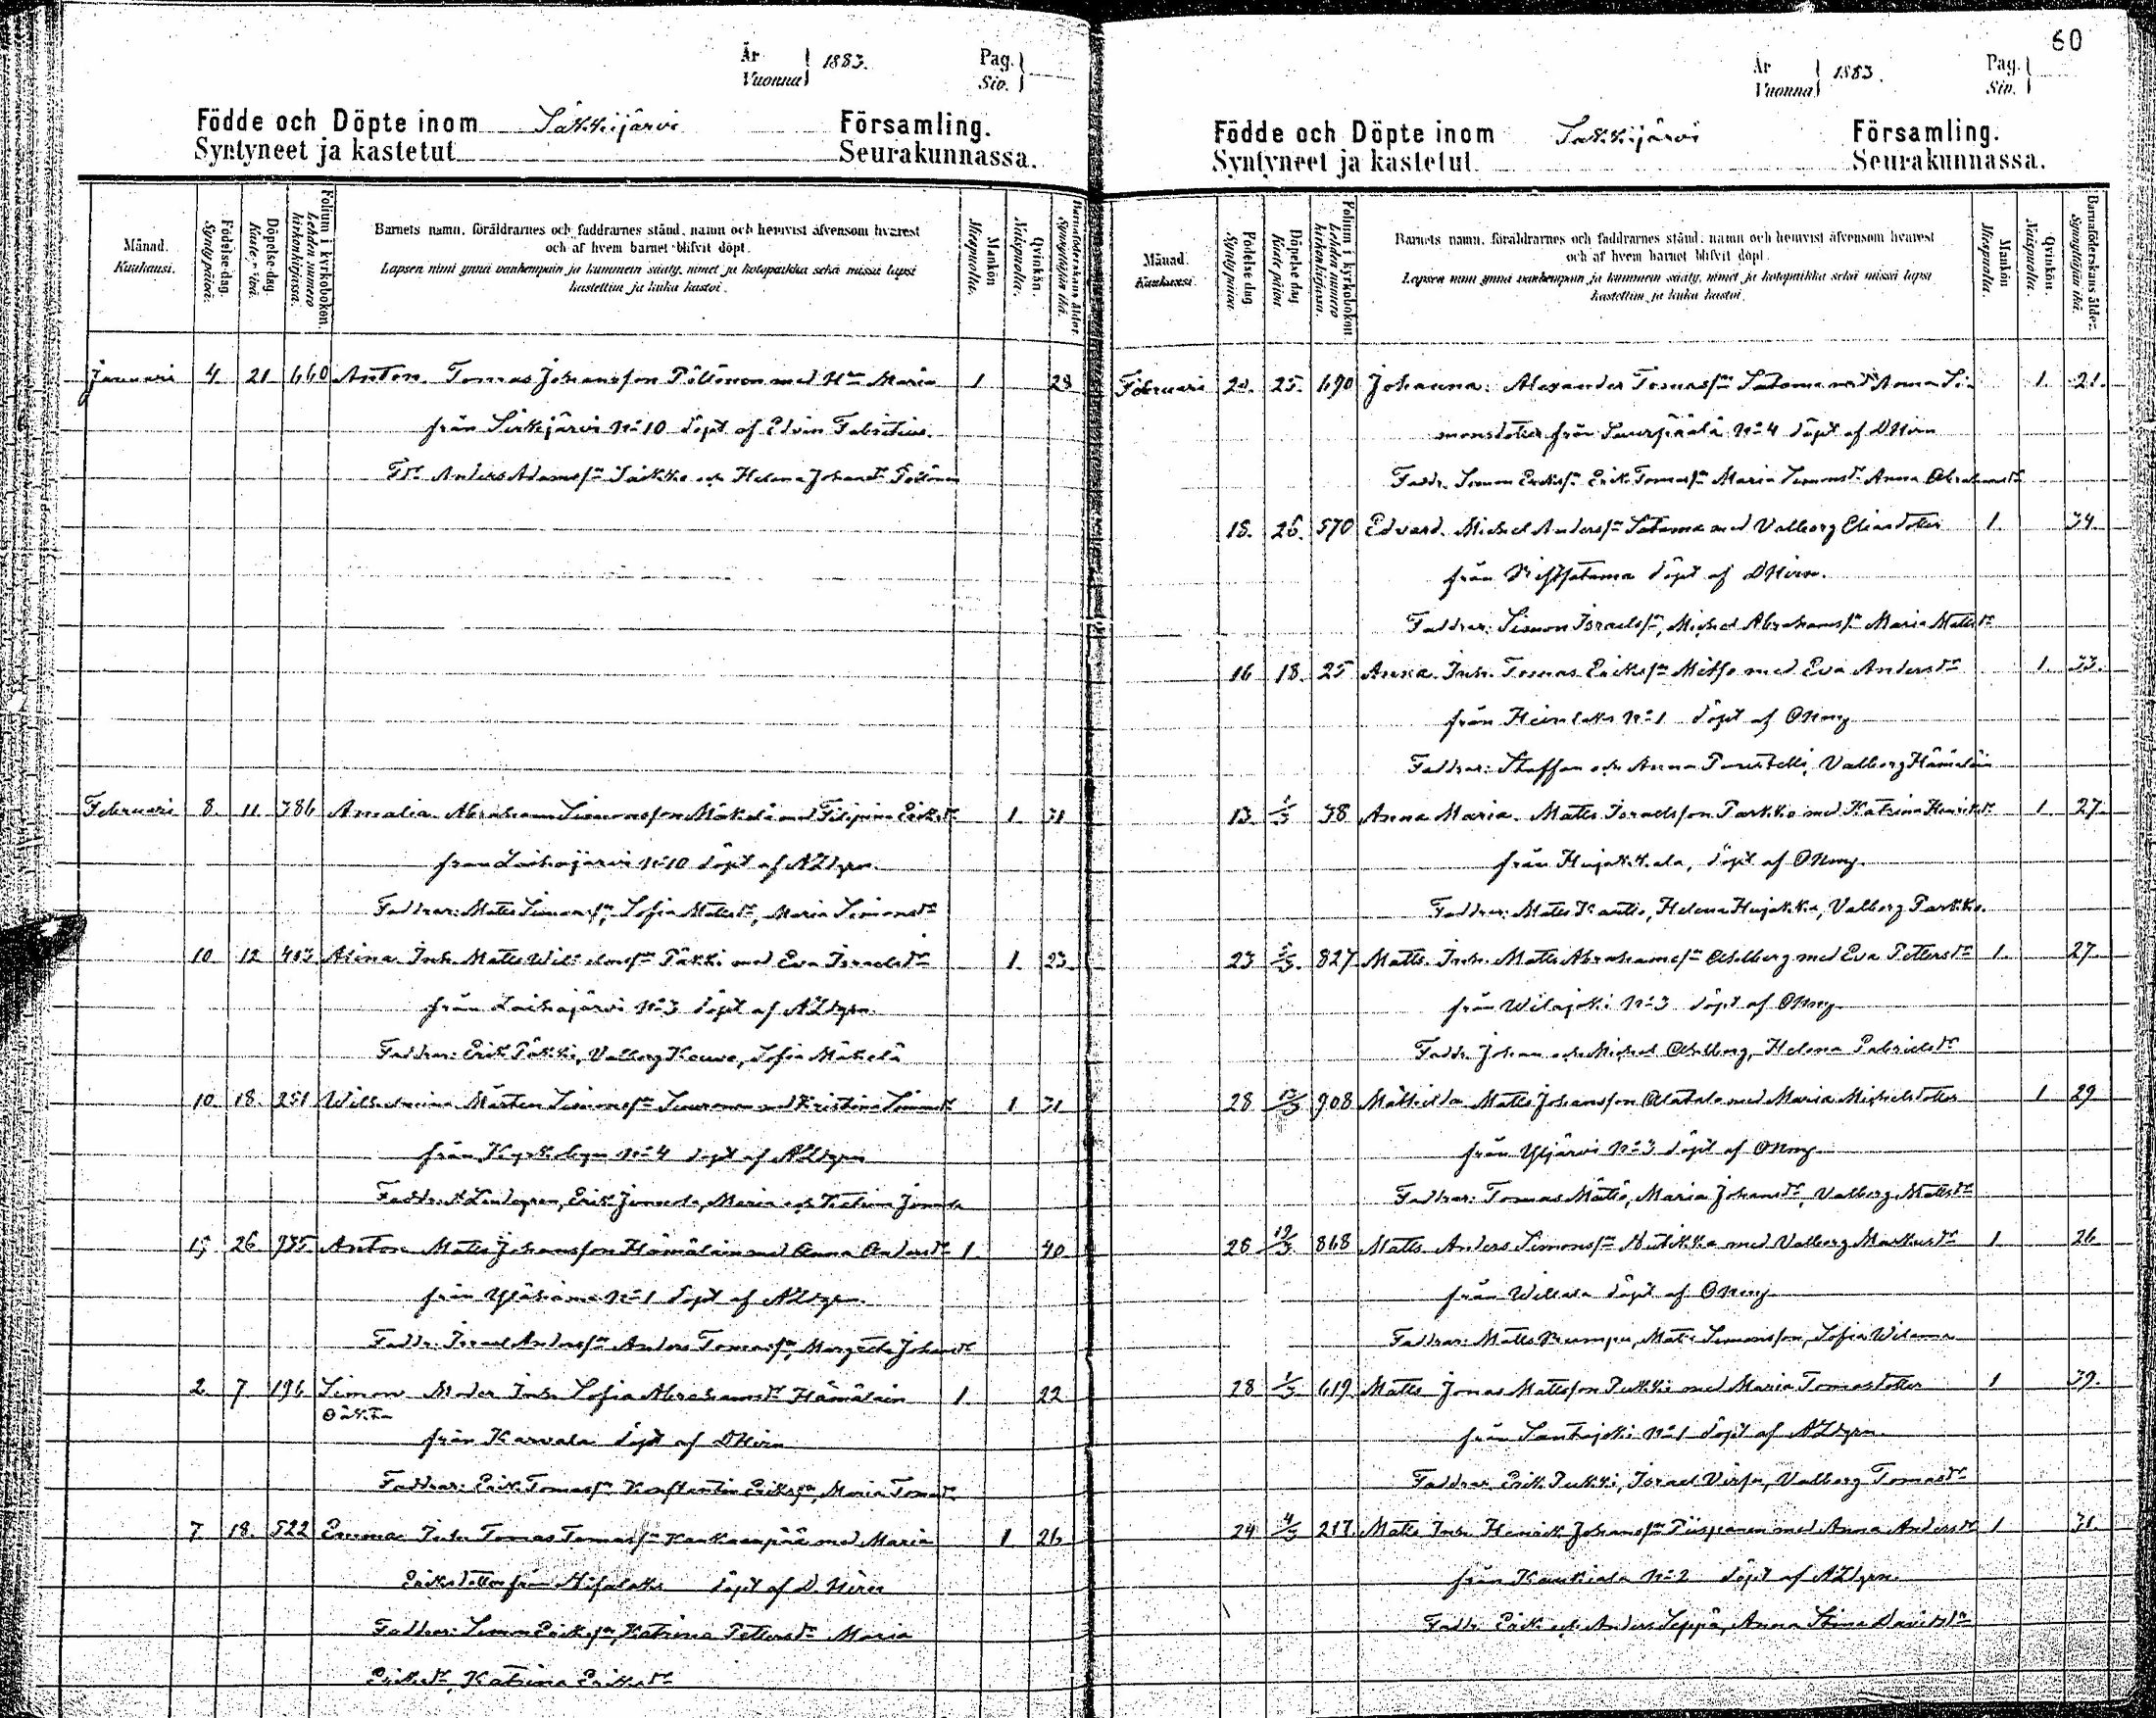 År
Vuonna } 1883.
Pag.
Siv. }
Födde och Döpte inom Säkkijärvi Församling.
Syntyneet ja kastetut Seurakunnassa.
Månad.
Kuukausi.
Födelse-dag.
Syntypäivä.
Döpelse-dag.
Folium i kyrkoboken.
Lehden numero kirkonkirjassa.
Barnets namn, föräldrarnes och faddrarnes stånd, namn och hemvist äfvensom hvarest
och af hvem barnet blifvit döpt.
Lapsen nimi ynnä vanhempain ja kummein sääty, nimet ja kotopaikka sekä missä lapsi
kastettiin ja kuka kastoi.
Mankön
Miespuolia.
Qvinkön.
Naispuolia.
Barnaföderskans ålder.
Synnyttäjän ikä.
Januari 4. 21 660 Anton. Tomas Johansson Pöllönen med Hu Maria 1 28
från Sirkjärvi No 10 döpt af Edvin Fabritius.
Fdr. Anders Adamsson och Helena Johansdr Pöllönen
Februari 8. 11 386 Amalia. Abraham Simonsson Mäkelä med Filipina Eriksdr 1 31
från Laihajärvi No 10 döpt af ALdgrn.
Faddrar: Matts Simonsson, Sofia Mattsdr, Maria Simonsdr
10 12 403 Alina Inh. Matts Päkki med Eva Israelsdr 1. 23
från Laihajärvi No 3 döpt af ALdgrn.
Faddrar: Erik Päkki, Valborg, Sofia Mäkelä
10. 18. 251 Wilhelmina Mårten Simonsson med Kristina 1 31
från Kyrkobyn No 4 döpt af ALdgrn
Faddr. A Lindgren, Erik, Maria och
15 26 735 Anton Matts Johansson Hämäläin med Anna Andersdr 1. 40
från No 1 döpt af ALdgrn.
Faddr. Israel Andersson Anders Tomasson, Margeta Johansdr
2 7 196 Simon Moder Inh. Sofia Abrahamsdr Hämäläin 1. 22
Oäkta
från Karvala döpt af DHirn
Faddrar: Erik Tomasson Konstantin Eriksson, Maria Tomasdr
7 18. 522 Emma Inh. Tomas Tomasson Kankaanpää med Maria 1 26
Eriksdotter från döpt af D. Hirn
Faddrar: Simon Eriksson, Katrina Pettersdr Maria
Eriksdr, Katrina Eriksdr
60
År
Vuonna } 1883.
Pag.
Siv. }
Födde och Döpte inom Säkkijärvi Församling.
Syntyneet ja kastetut Seurakunnassa.
Månad.
Kuukausi.
Födelse dag.
Syntypäivä.
Döpelse dag.
Kaste päivä.
Folium i kyrkoboken.
Lehden numero kirkonkirjassa.
Barnets namn, föräldrarnes och faddrarnes stånd, namn och hemvist äfvensom hvarest
och af hvem barnet blifvit döpt.
Lapsen nimi ynnä vanhempain ja kummein sääty, nimet ja kotopaikka sekä missä lapsi
kastettiin ja kuka kastoi.
Mankön
Miespuolia.
Qvinkön.
Naispuolia.
Barnaföderskans ålder.
Synnyttäjän ikä.
Februari 20. 25. 690 Johanna. Alexander Tomasson Satama med Anna Si- 1. 21.
monsdotter från Suurpäälä No 4 döpt af DHirn
Faddr. Simon Eriksson Erik Tomasson Maria Simonsdr Anna Abrahamsdr
18. 26. 570 Edvard. Michel Andersson Satama med Valborg Eliasdotter 1. 34
från döpt af DHirn.
Faddrar: Simon Israelsson, Michel Abrahamsson Maria Mattsdr
16 18. 25 Anna Inh. Tomas Eriksson med Eva Andersdr 1. 33.
från Heinlaks No 1 döpt af
Faddrar: Staffan och Anna, Valborg Hämäläin
13. 1/3 38 Anna Maria. Matts Israelsson Parkko med Katrina Henriksdr 1. 27.
från Hujakkala, döpt af
Faddrar: Matts, Helena Hujakka, Valborg Parkko.
23 827 Matts. Inh. Matts Abrahamsson Ahlberg med Eva Pettersdr 1. 27.
från Wilajoki No 3 döpt af
Faddr. Johan och Michel Ahlberg, Helena Gabrielsdr
28 908 Mathilda Matts Johansson Alatalo med Maria Michelsdotter 1 29
från Yljärvi No 3 döpt af
Faddrar: Tomas Mättö, Maria Johansdr, Valborg Mattsdr
28 868 Matts Anders Simonsson med Valborg Markusdr 1 26
från Willala döpt af
Faddrar: Matts, Matts Simonsson, Sofia
28 1/3 619 Matts Jonas Mattsson Pukki med Maria Tomasdotter 1 39.
från Santajoki No 1 döpt af ALdgrn.
Faddrar Erik Pukki, Israel, Valborg Tomasdr
24 4/3 217 Matts Inh. Henrik Johansson Piispanen med Anna Andersdr 1 31.
från Kaukiala No 2 döpt af ALdgrn.
Faddr. Erik och Anders Seppä, Anna Stina Davidsdr